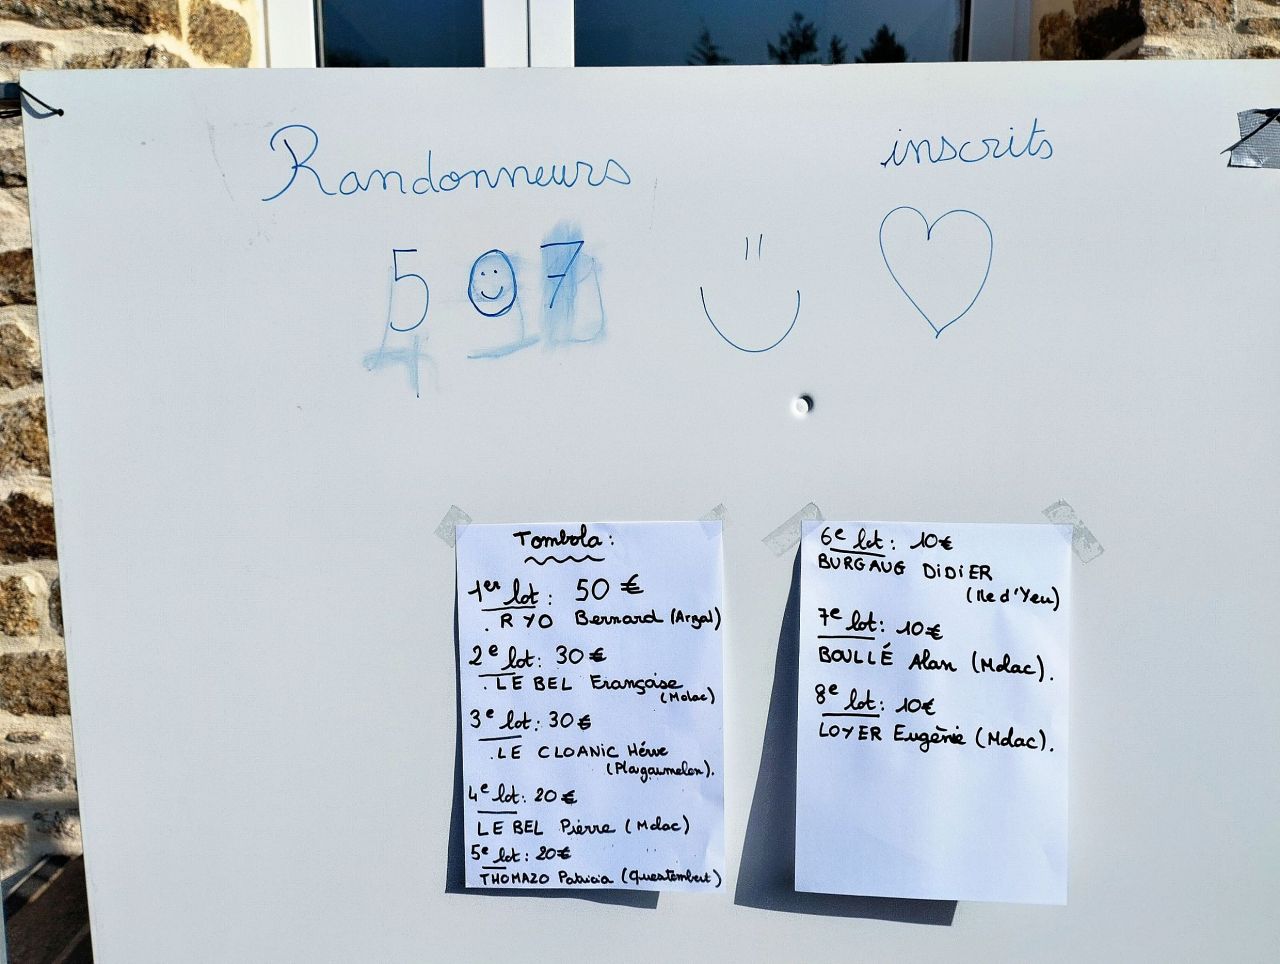 Randonneurs inscrits
507
Tombola :
1er lot : 50 €
. RYO Bernard (Arzal)
2e lot : 30 €
. LE BEL Françoise
(Molac)
3e lot : 30 €
. LE CLOANIC Hérve
(Plagaumelen).
4e lot : 20 €
LE BEL Pierre (Molac)
5e lot : 20 €
THOMAZO Patricia (Questembert)
6e lot : 10 €
BURGAUG DIDIER
(Ile d'Yeu)
7e lot : 10 €
BOULLÉ Alan (Molac).
8e lot : 10 €
LOYER Eugènie (Molac).